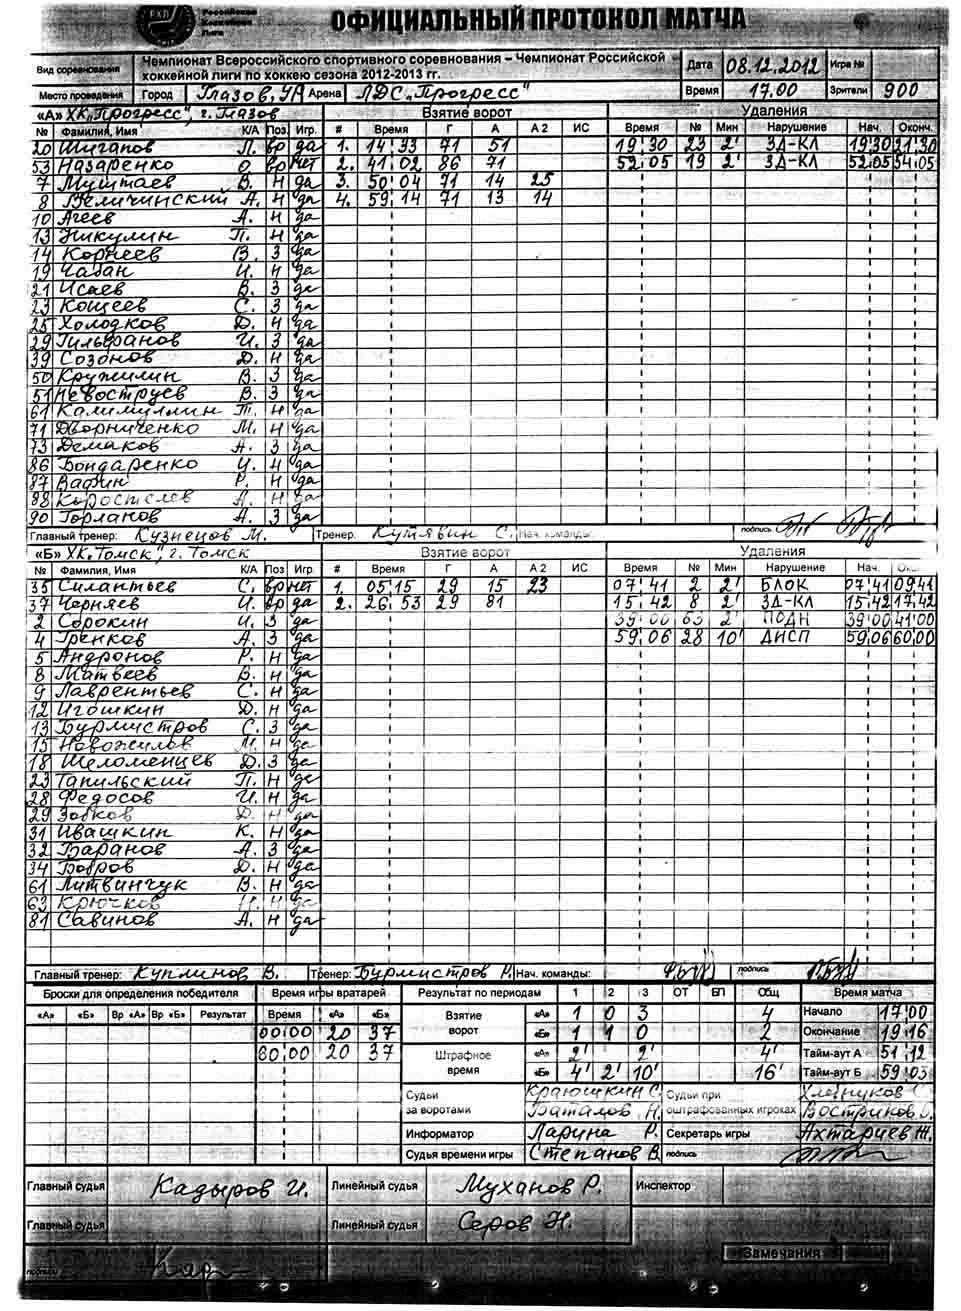 РХЛ Российская Хоккейная Лига
ОФИЦИАЛЬНЫЙ ПРОТОКОЛ МАТЧА
Вид соревнования Чемпионат Всероссийского спортивного соревнования – Чемпионат Российской хоккейной лиги по хоккею сезона 2012-2013 гг. Дата 08.12.2012 Игра №
Место проведения Город Глазов, УР Арена ЛДС „Прогресс" Время 17.00 Зрители 900
«А» ХК „Прогресс", г. Глазов Взятие ворот Удаления
№ Фамилия, Имя К/А Поз Игр. # Время Г А А 2 ИС Время № Мин Нарушение Нач. Оконч.
20 Шиганов Л. вр да 1. 14 33 71 51 19 30 23 2' ЗД-КЛ 19 30 21 30
53 Назаренко О. вр нет 2. 41 02 86 71 52 05 19 2' ЗД-КЛ 52 05 54 05
7 Муштаев В. Н да 3. 50 04 71 14 25
8 Величинский А. Н да 4. 59 14 71 13 14
10 Агеев А. Н да
13 Никулин П. Н да
14 Корнеев В. З да
19 Чабан И. Н да
21 Исаев В. З да
23 Кощеев С. З да
25 Холодков Д. Н да
29 Гильфанов И. З да
39 Созонов Д. Н да
50 Кружилин В. З да
51 Невоструев В. З да
61 Калимуллин Т. Н да
71 Дворниченко М. Н да
73 Демаков А. З да
86 Бондаренко И. Н да
87 Вафин Р. Н да
88 Коростелев А. Н да
90 Горланов А. З да
Главный тренер: Кузнецов М. Тренер: Кутявин С. Нач. команды: подпись
«Б» ХК „Томск", г. Томск Взятие ворот Удаления
№ Фамилия, Имя К/А Поз Игр. # Время Г А А 2 ИС Время № Мин Нарушение Нач. Ок
35 Силантьев С. вр нет 1. 05 15 29 15 23 07 41 2 2' БЛОК 07 41 09 41
37 Черняев И. вр да 2. 26 53 29 81 15 42 8 2' ЗД-КЛ 15 42 17 42
2 Сорокин И. З да 39 00 63 2' ПОДН 39 00 41 00
4 Гренков А. З да 59 06 28 10' ДИСП 59 06 60 00
5 Андронов Р. Н да
8 Матвеев В. Н да
9 Лаврентьев С. Н да
12 Игошкин Д. Н да
13 Бурмистров С. З да
15 Новожилов М. Н да
18 Шеломенцев Д. З да
23 Тапильский П. Н да
28 Федосов И. Н да
29 Зобков Д. Н да
31 Ивашкин К. Н да
32 Баранов А. З да
34 Бобров Д. Н да
61 Литвинчук В. Н да
63 Крючков Н. Н да
81 Савинов А. Н да
Главный тренер: Куплинов В. Тренер: Бурмистров Р. Нач. команды: подпись
Броски для определения победителя Время игры вратарей Результат по периодам 1 2 3 ОТ БП Общ Время матча
«А» «Б» Вр «А» Вр «Б» Результат Время «А» «Б» Взятие ворот «А» 1 0 3 4 Начало 17 00
00:00 20 37 «Б» 1 1 0 2 Окончание 19 16
60:00 20 37 Штрафное время «А» 2' 2' 4' Тайм-аут А 51 12
«Б» 4' 2' 10' 16' Тайм-аут Б 59 03
Судьи за воротами Краюшкин С. Судьи при оштрафованных игроках Хлебуков С.
Баталов Н. Востриков
Информатор Ларина Р. Секретарь игры Ахтариев Ж.
Судья времени игры Степанов В. подпись
Главный судья Кадыров И. Линейный судья Муханов Р. Инспектор
Главный судья Линейный судья Серов Н.
подпись Замечания